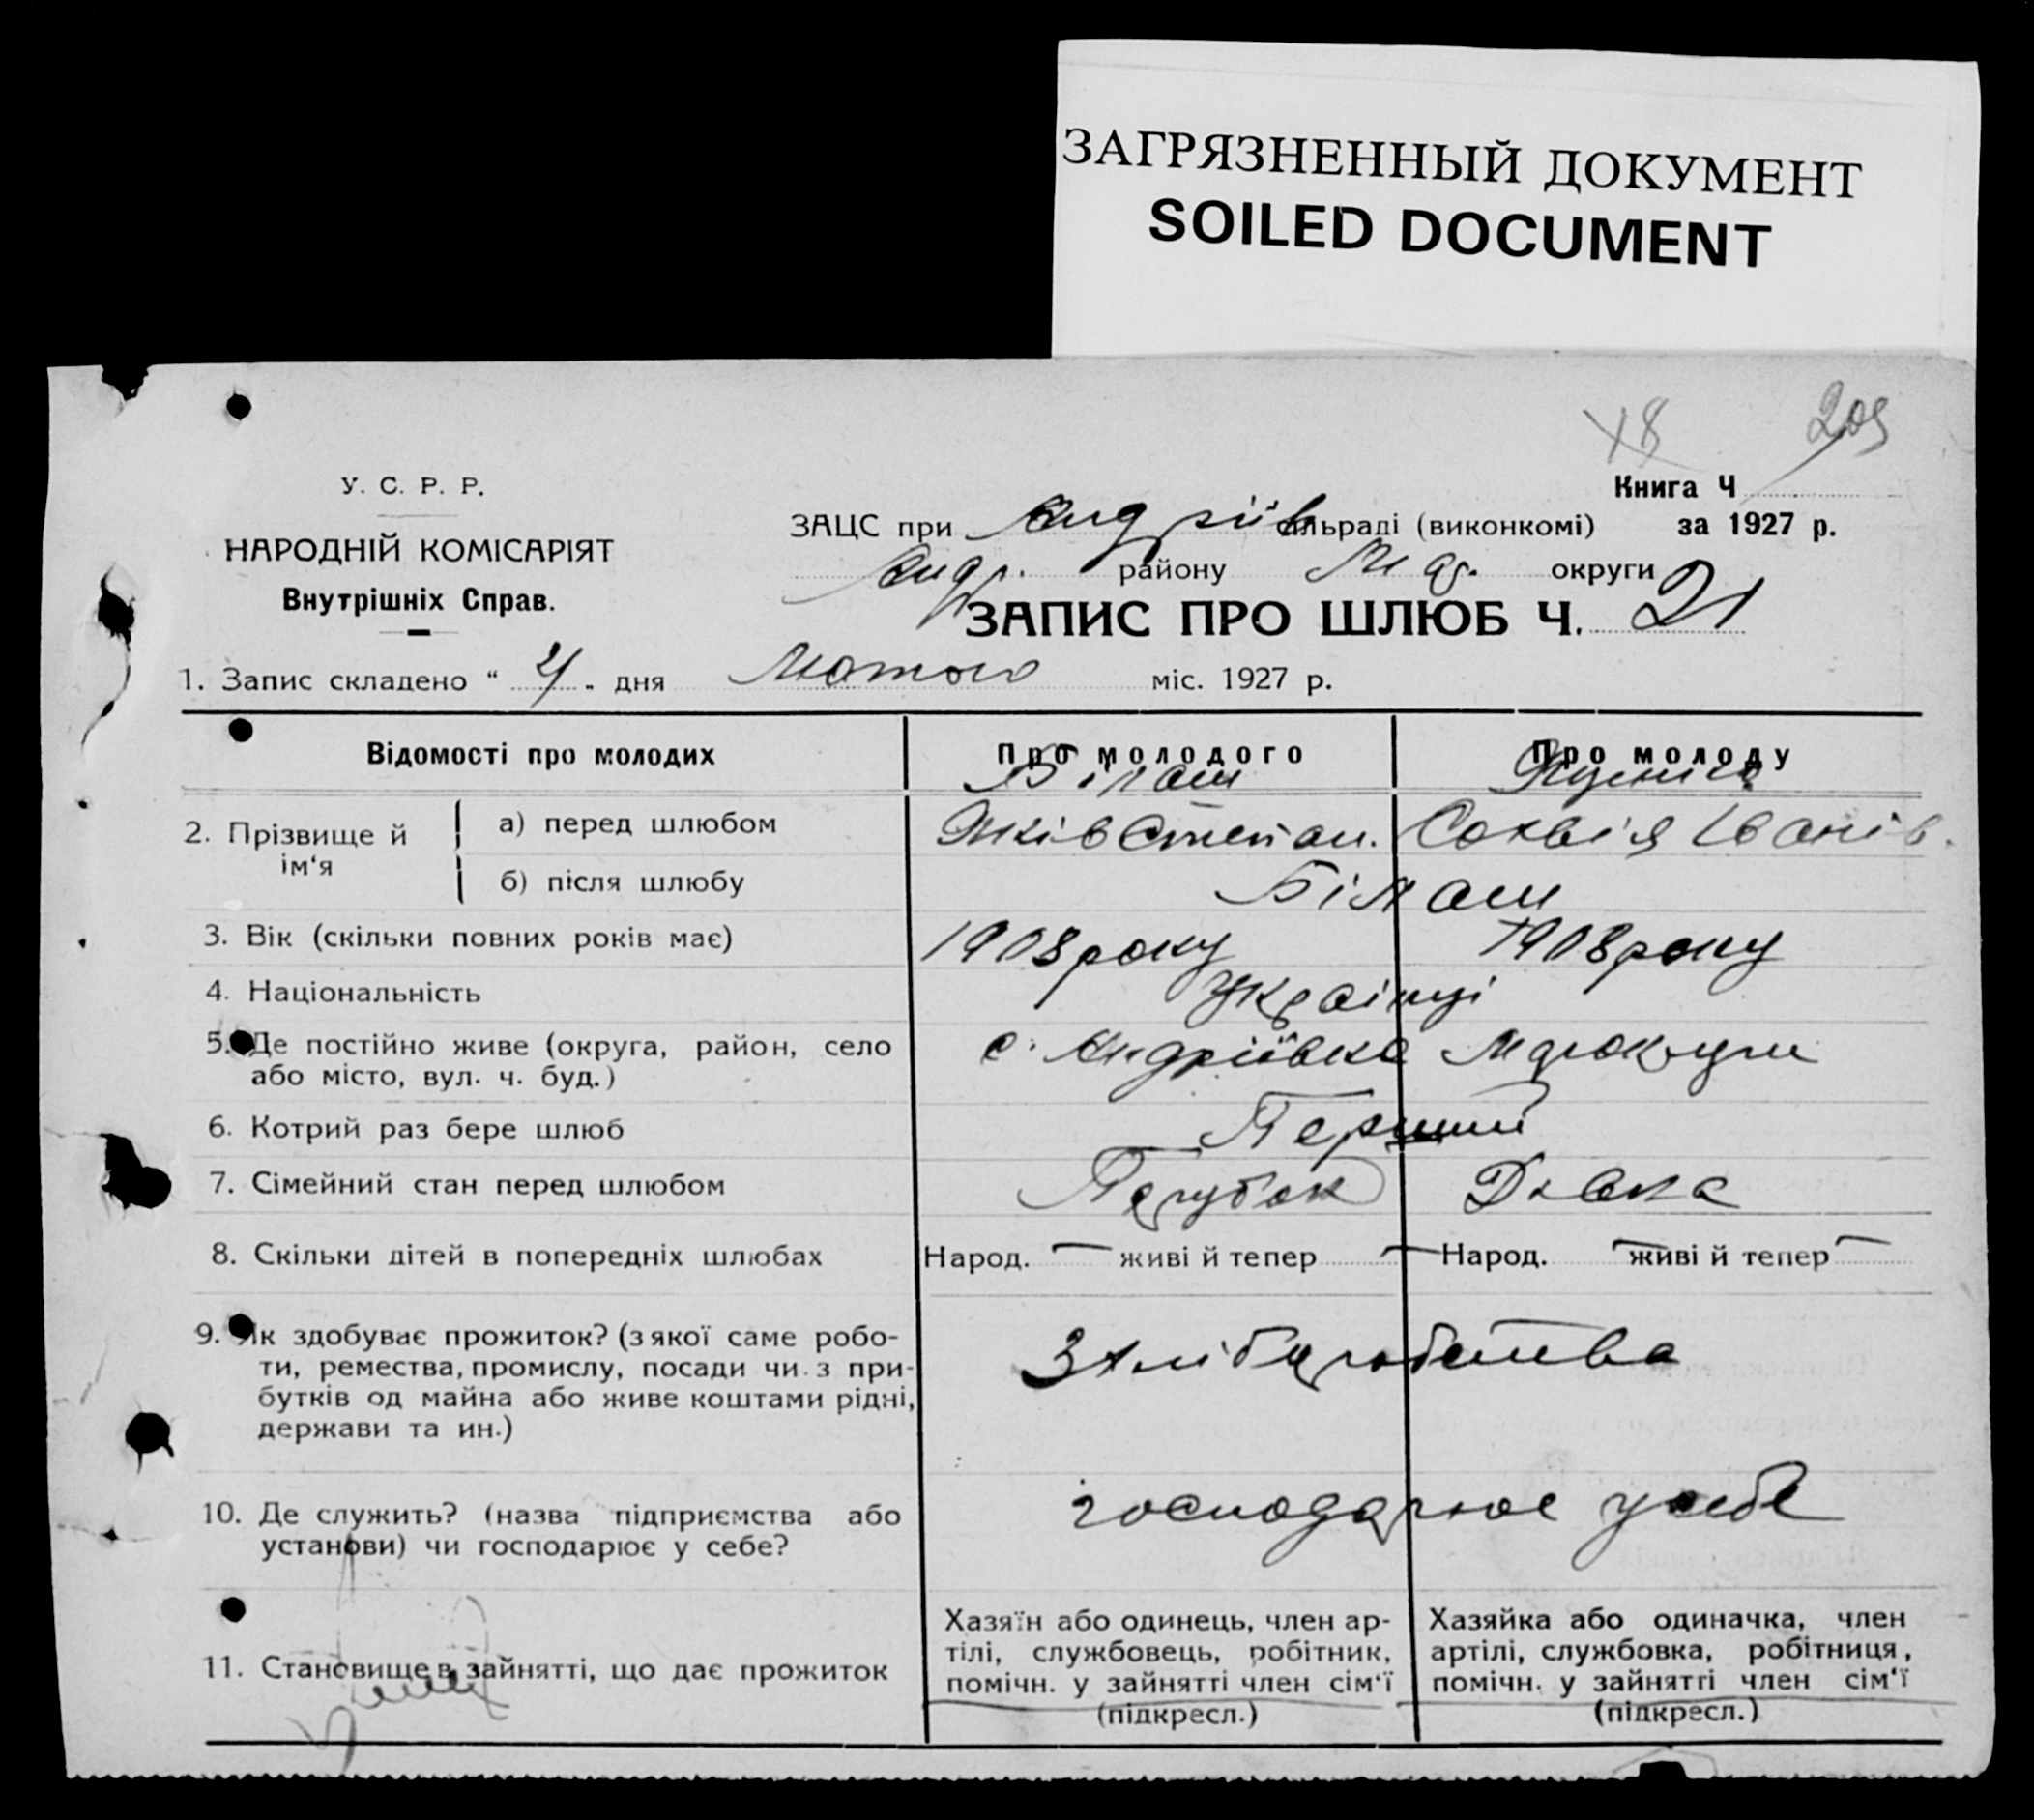 ЗАГРЯЗНЕННЫЙ ДОКУМЕНТ
SOILED DOCUMENT
209
У. С. Р. Р.
НАРОДНІЙ КОМІСАРІЯТ
Внутрішніх Справ.
Книга Ч
ЗАЦС при Андріїв сільраді (виконкомі) за 1927 р.
Андр. району округи
ЗАПИС ПРО ШЛЮБ Ч. 21
1. Запис складено " " дня Лютого міс. 1927 р.
Відомості про молодих
Про молодого
Про молоду
2. Прізвище й ім'я
а) перед шлюбом
Білаш
Яків Степан.
Іванів.
б) після шлюбу
Білаш
3. Вік (скільки повних років має)
1908 року
1908 року
4. Національність
Українці
5. Де постійно живе (округа, район, село
або місто, вул. ч. буд.)
с. Андріївка
6. Котрий раз бере шлюб
Перший
7. Сімейний стан перед шлюбом
Парубок
Дівка
8. Скільки дітей в попередніх шлюбах
Народ. — живі й тепер —
Народ. — живі й тепер —
9. Як здобуває прожиток? (з якої саме робо-
ти, ремества, промислу, посади чи з при-
бутків од майна або живе коштами рідні,
держави та ин.)
З хлібуробства
10. Де служить? (назва підприємства або
установи) чи господарює у себе?
господарює у себе
11. Становище в зайнятті, що дає прожиток
Хазяїн або одинець, член ар-
тілі, службовець, робітник,
помічн. у зайнятті член сім'ї
(підкресл.)
Хазяйка або одиначка, член
артілі, службовка, робітниця,
помічн. у зайнятті член сім'ї
(підкресл.)